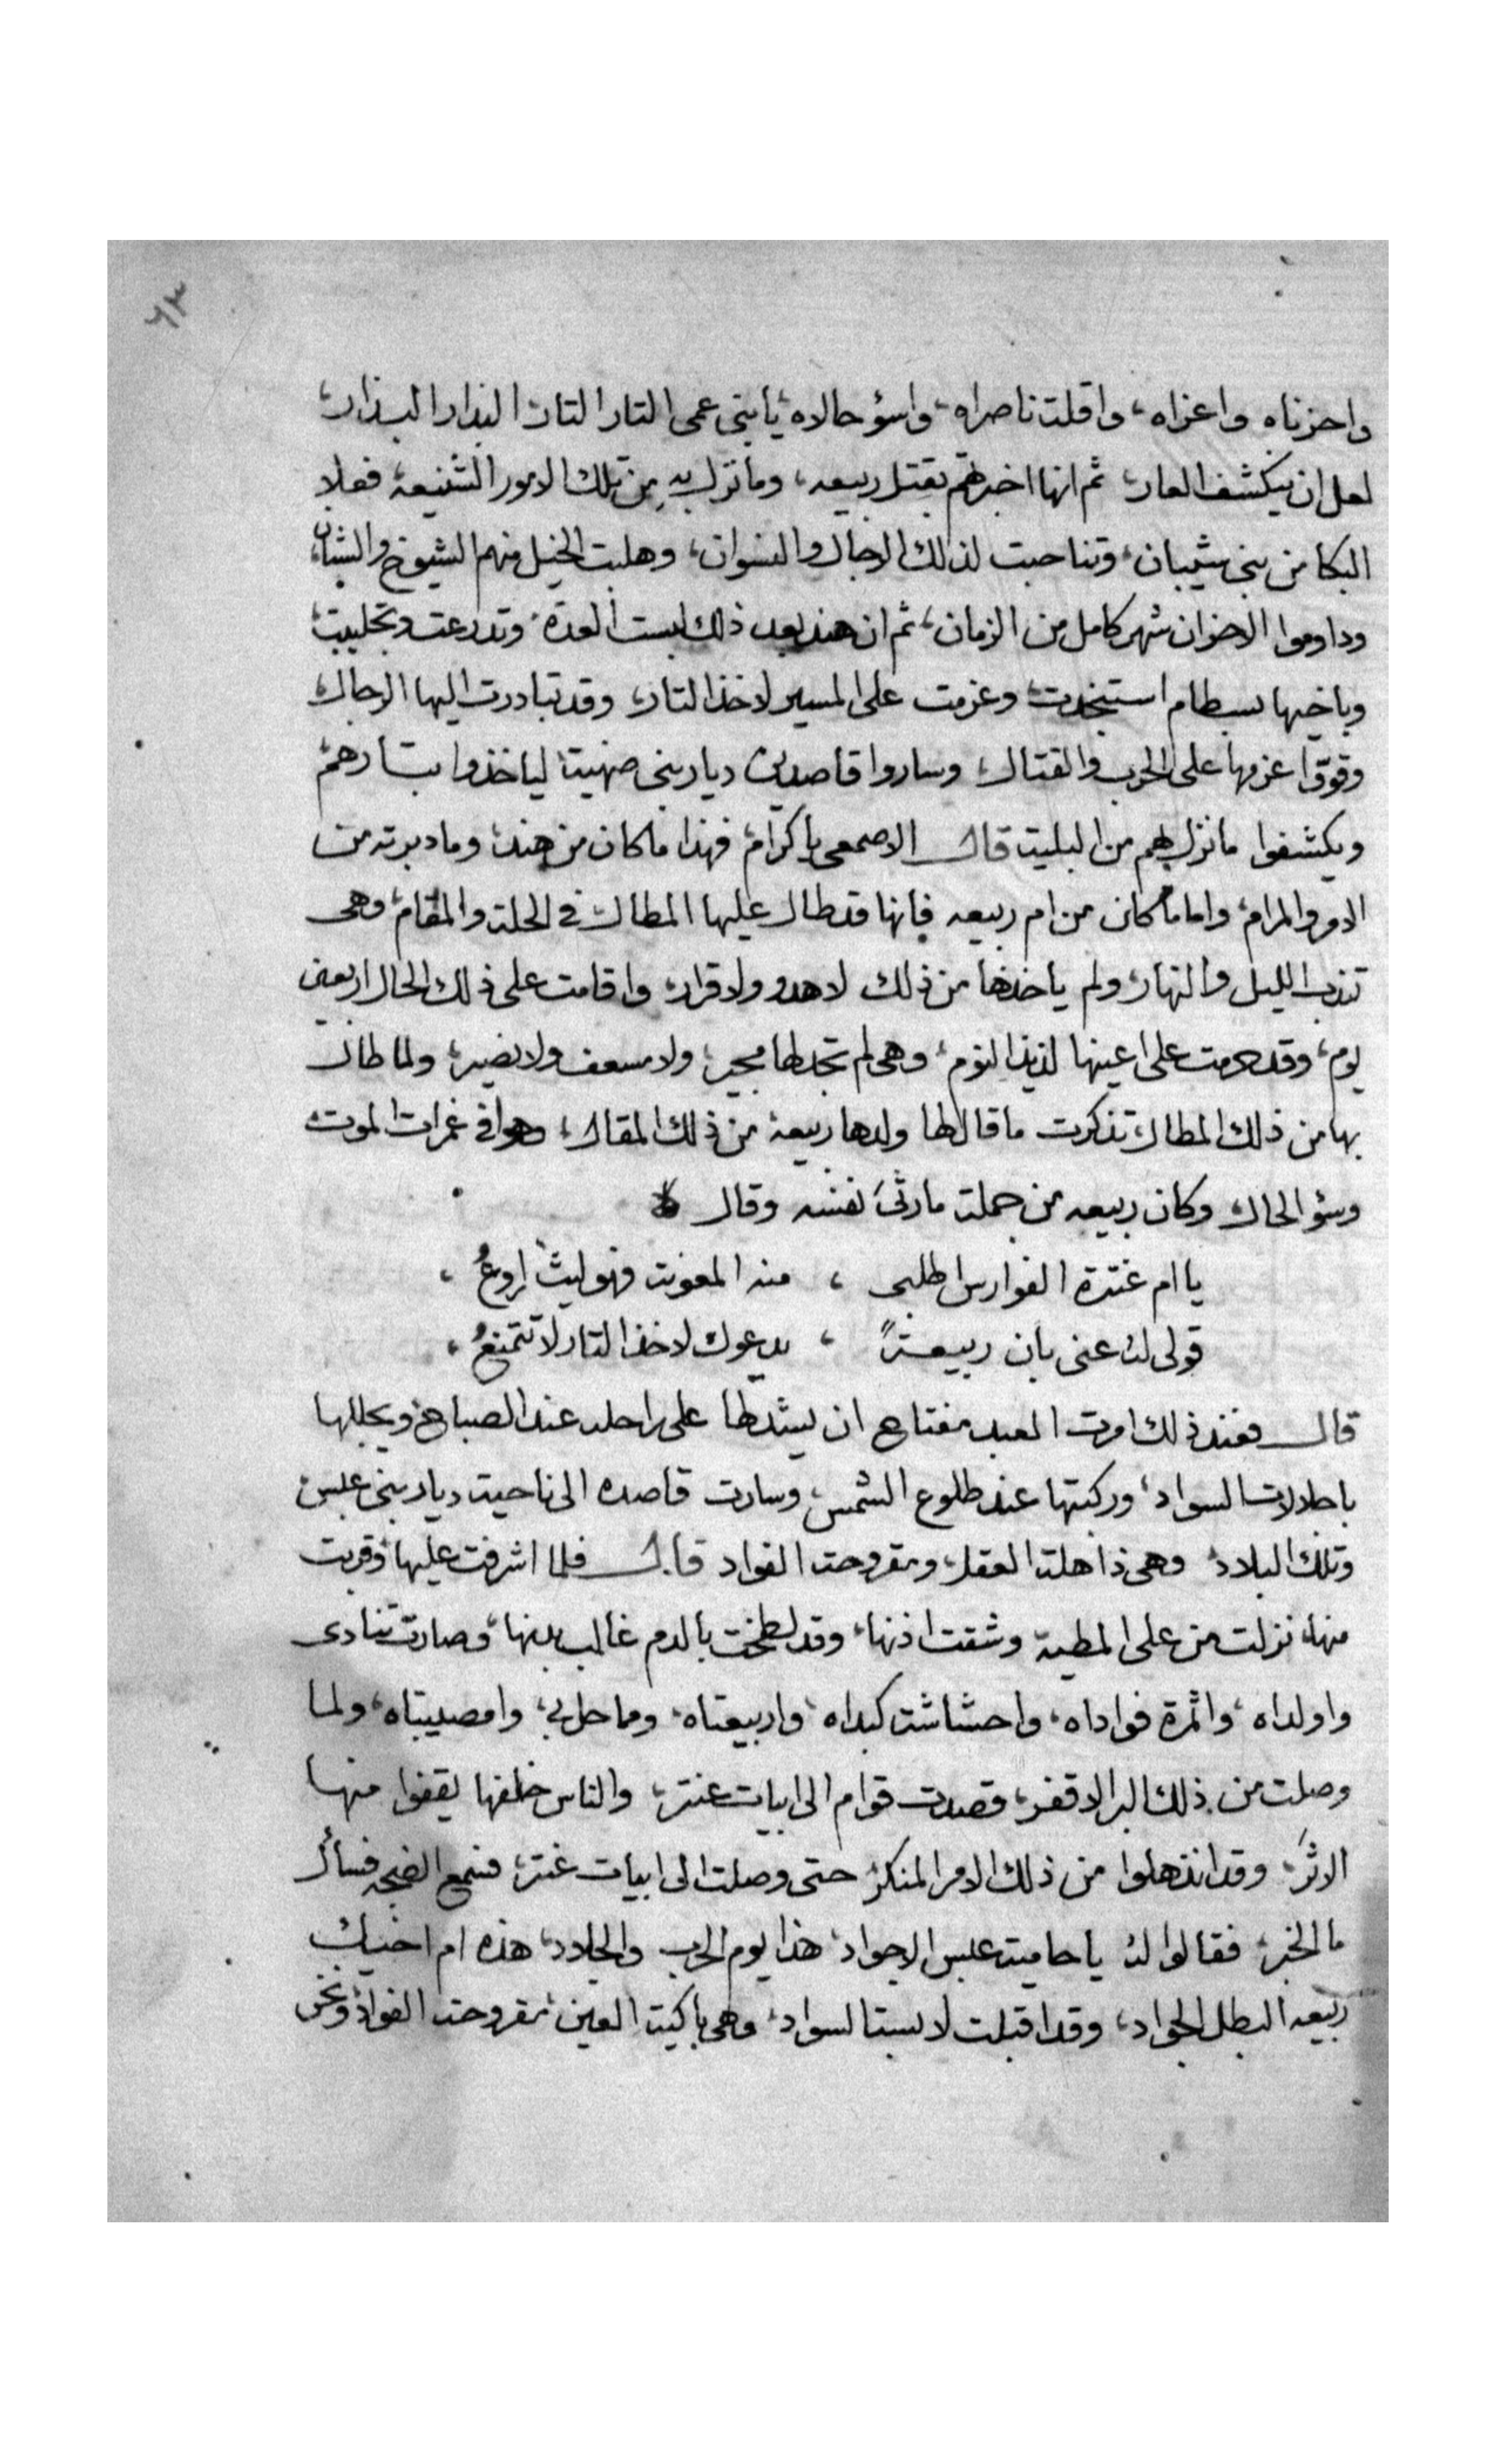 ٦٣
واحزناه واعزاه، واقلت ناصراه، واسؤ حالاه، يا بنى عمى التار التار، البدار البدار،
لعل ان ينكشف العار، ثم انها اخبرتهم بقتل ربيعه، وما نزل به من تلك الامور الشنيعة، فعلا
البكا من بنى شيبان، وتناحبت لذلك الرجال والنسوان، وهلبت الخيل منهم الشيوخ والشبان،
وداوموا الاحزان شهر كامل من الزمان، ثم ان هند بعد ذلك لبست العدة، وتدرعت وتجلببت،
وباخيها بسطام استنجدت، وعزمت على المسير لاخذ التار، وقد تبادرت اليها الرجال،
وقووا عزمها على الحرب والقتال، وساروا قاصدين ديار بنى ضهيتة لياخذوا بتارهم،
ويكشفوا ما نزل بهم من البليت قال الاصمعى يا كرام، فهذا ما كان من هند، وما دبرته من
الامور والمرام، واما ما كان من ام ربيعه فانها قد طال عليها المطال، فى الحلة والمقام، وهى
تندب الليل والنهار، ولم ياخذها من ذلك لا هدو ولا قرار، واقامت على ذلك الحال اربعين
يوم، وقد حرمت على اعينها لذيذ النوم، وهى لم تجد لها مجير، ولا مسعف ولا نصير، ولما طال
بها من ذلك المطال، تذكرت ما قال لها ولدها ربيعة من ذلك المقال، وهو فى غمرات الموت
وسؤ الحال، وكان ربيعه من جملت ما رثى نفسه وقال
يا ام عنترة الفوارس اطلبى ، منه المعونت فهو ليث اروعُ ،
قولى له عنى بان ربيعتاً ، يدعوك لاخذ التار لا تتمنعُ ،
قال فعند ذلك امرت العبد مفتاح ان يشد لها على راحله عند الصباح، ويجللها
باجلالات السواد، وركبتها عند طلوع الشمس، وسارت قاصده الى ناحيت ديار بنى عبس
وتلك البلاد، وهى ذاهلة العقل، ومقروحت الفواد قال فلما اشرفت عليها، وقربت
منها، نزلت من على المطية وشقت اذنها، وقد لطخت بالدم غالب بدنها، وصارت تنادى
واولداه، واثمرة فواداه، واحشاشت كبداه، واربيعتاه، ومما حل بى، وامصيبتاه، ولما
وصلت من ذلك البر الاقفر، قصدت قوام الى ابيات عنتر، والناس خلفها يقفوا منها
الاثر، وقد انذهلوا من ذلك الامر المنكر، حتى وصلت الى ابيات عنتر، فسمع الضجه فسأل
ما الخبر، فقالوا له يا حاميت عبس الاجواد، هذا يوم الحرب والجلاد، هذه ام اخيك
ربيعه البطل الجواد، وقد اقبلت لابست السواد، وهى باكيت العين، مقروحت الفواد، ونحن